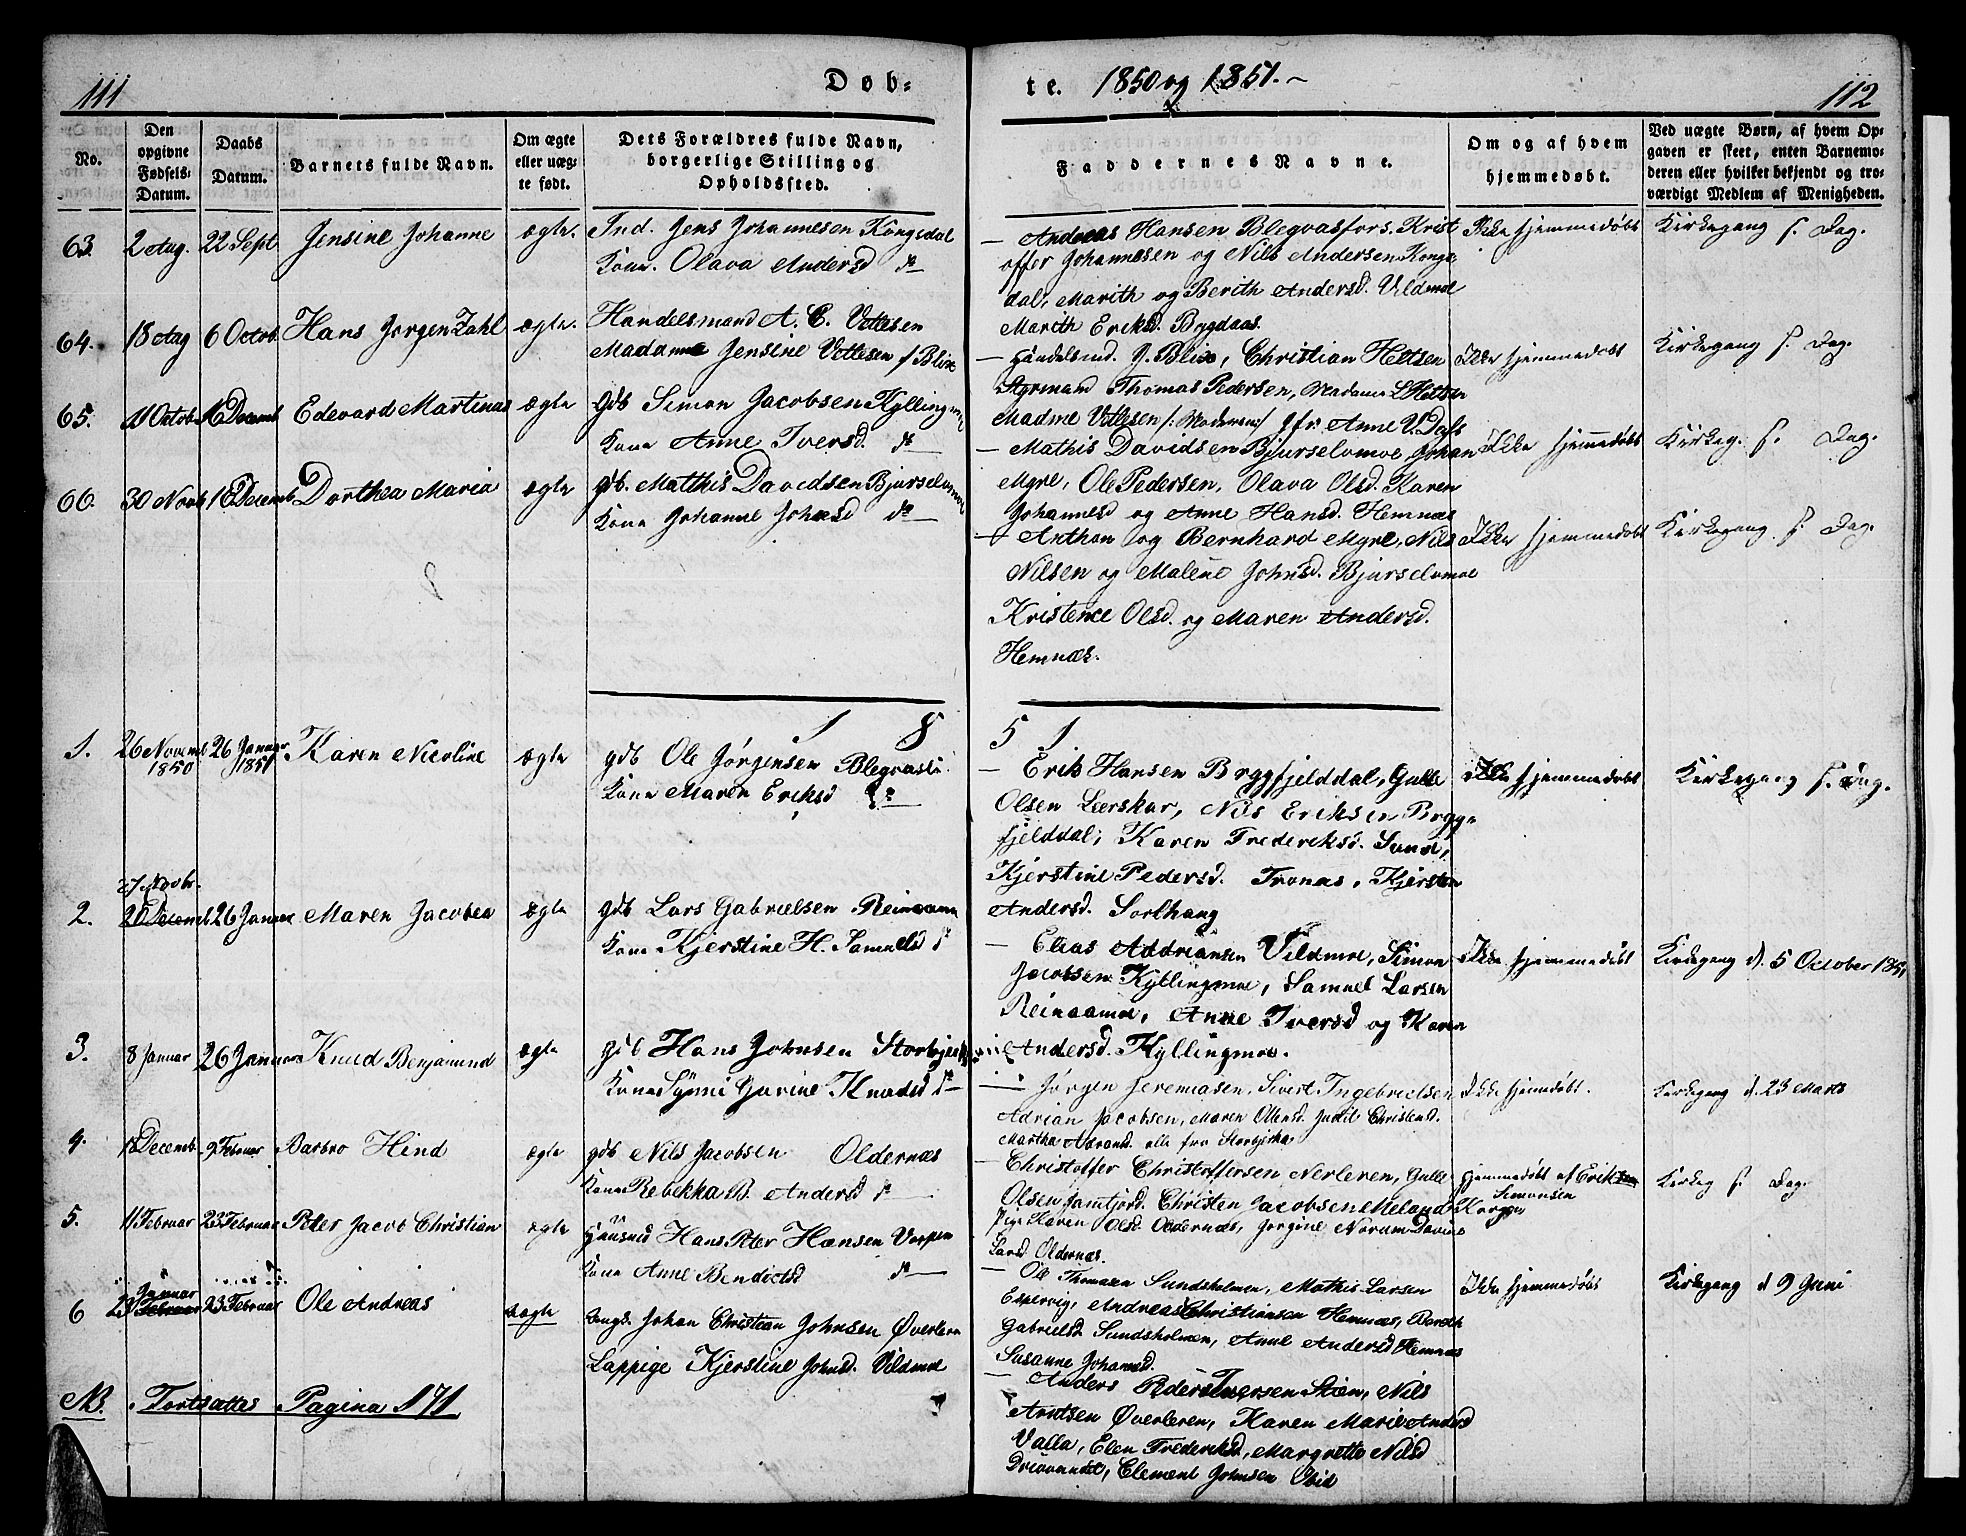 111
Døb-
te. 1850 og 1851.
112
No.
Den opgivne Fødsels-Datum.
Daabs Datum.
Barnets fulde Navn.
Om ægte eller uægte født.
Dets Forældres fulde Navn, borgerlige Stilling og Opholdssted.
Faddernes Navne.
Om og af hvem hjemmedøbt.
Ved uægte Børn, af hvem Opgaven er skeet, enten Barnemoderen eller hvilket bekjendt og troværdigt Medlem af Menigheden.
63. 2 Aug. 22 Sept. Jensine Johanne ægte. Ind. Jens Johannesen Kongsdal
Kone. Olava Andersd do
— Andreas Hansen Blegvasfors. Krist
offer Johannesen og Nils Andersen Kongs
dal, Marith og Berith Andersd. Vildmoe
Marith Eriksd. Bygdaas.
Ikke hjemmedøbt
Kirkegang s. Dag.
64. 18 Aug 6 Octob. Hans Jørgen Zahl ægte. Handelsmand A. C. Vettesen
Madame Jensine Vettesen f. Blix
— Handelsmd. J. Blix, Christian Heltsen
Styrmand Thomas Pedersen, Madame L Heltsen
Madme Vettesen /: Moderen :/ Jfr Anne V. Dass
Ikke hjemmedøbt
Kirkegang s. Dag.
65. 11 Octob. 16 Decemb Edevard Martinas ægte Gdb Simon Jacobsen Kyllingmoe
Kone Anne Iversd. do
— Mathis Davidsen Bjurselvmoe, Johan
Myre, Ole Pedersen, Olava Olsd. Karen
Johannesd og Anne Hansd. Hemnæs
Ikke hjemmedøbt
Kirkeg. s. Dag.
66. 30 Novb 16 Decemb. Dorthea Maria ægte gdb. Matthis Davidsen Bjurselvmoe
Kone Johanne Johnsd do
— Anthon og Bernhard Myre, Nils
Nilsen og Malene Johnsd. Bjurselvmoe
Kristence Olsd. og Maren Andersd.
Hemnæs.
Ikke hjemmedøbt
Kirkegang s. Dag.
1 8 5 1
1. 26 Novemb 1850 26 Januar 1851 Karen Nicoline ægte gdb Ole Jørgensen Blegvasli
Kone Maren Eriksd do
— Erik Hansen Bryggfjelddal, Gulle
Olsen Leerskar, Nils Eriksen Brygg-
fjelddal, Karen Frederiksd. Sund,
Kjerstine Pedersd. Tronæs, Kjersten
Andersd. Sorlhaug
Ikke hjemmedøbt
Kirkegang s. Dag.
2. 26 Decemb 26 Januar Maren Jacobea ægte gdb Lars Gabrielsen Reinaamo
Kone Kjerstine H. Samuelsd do
— Elias Addriansen Vildmoe, Simon
Jacobsen Kyllingmoe, Samuel Larsen
Reinaamoe, Anne Iversd og Karen
Andersd. Kyllingmoe.
Ikke hjemmedøbt
Kirkegang d. 5 October 1851
3. 8 Januar 26 Januar Knud Benjamind ægte gdb Hans Johnsen
Kone Synni Gurine Knudsd do
— Jørgen Jeremiasen, Sivert Ingebrictsen
Adrian Jacobsen, Maren Olsd. Judit Christensd.
Martha Adriansd. alle fra Storbjerka
Ikke hjemmdøbt.
Kirkegang d. 23 Marts
4. 18 Decemb. 9 Februar Barbro Hend ægte gdb Nils Jacobsen Oldernæs
Kone Rebekka B. Andersd do
— Christoffer Christoffersen Nerleren, Gulle
Olsen Jamtjord. Christen Jacobsen Meland
Pige Karen Olsd. Oldernæs, Jorgine Norum Davine
Larsd Oldernæs.
Hjemmedøbt af Erik
Simonsen
Korgen
Kirkeg s. Dag.
5. 11 Februar 23 Februar Peter Jacob Christian ægte Huusmd Hans Peter Hansen Varpen
Kone Anne Bendictsd do
— Ole Thomasen Sundsholmen, Mathis Larsen
Espervig, Andreas Christiansen Hemnæs, Bereth
Gabrielsd Sundsholmen, Anne Andersd Hemnæs
Susanne Johansd.
Ikke hjemmedøbt
Kirkegang d 9 Juni
6 23 Januar 23 Februar Ole Andreas uægte Ungk. Johan Christian Johnsen Øverleren
Lappige Kjerstine Johnsd. Vildmoe
— Anders Peder Iversen Stien, Nils
Arntsen Øverleren, Karen Marie Andersd
Valla, Elen Frederiksd, Margrette Nilsd
Clement Johnsen Ibid
NB. Fortsættes Pagina 171